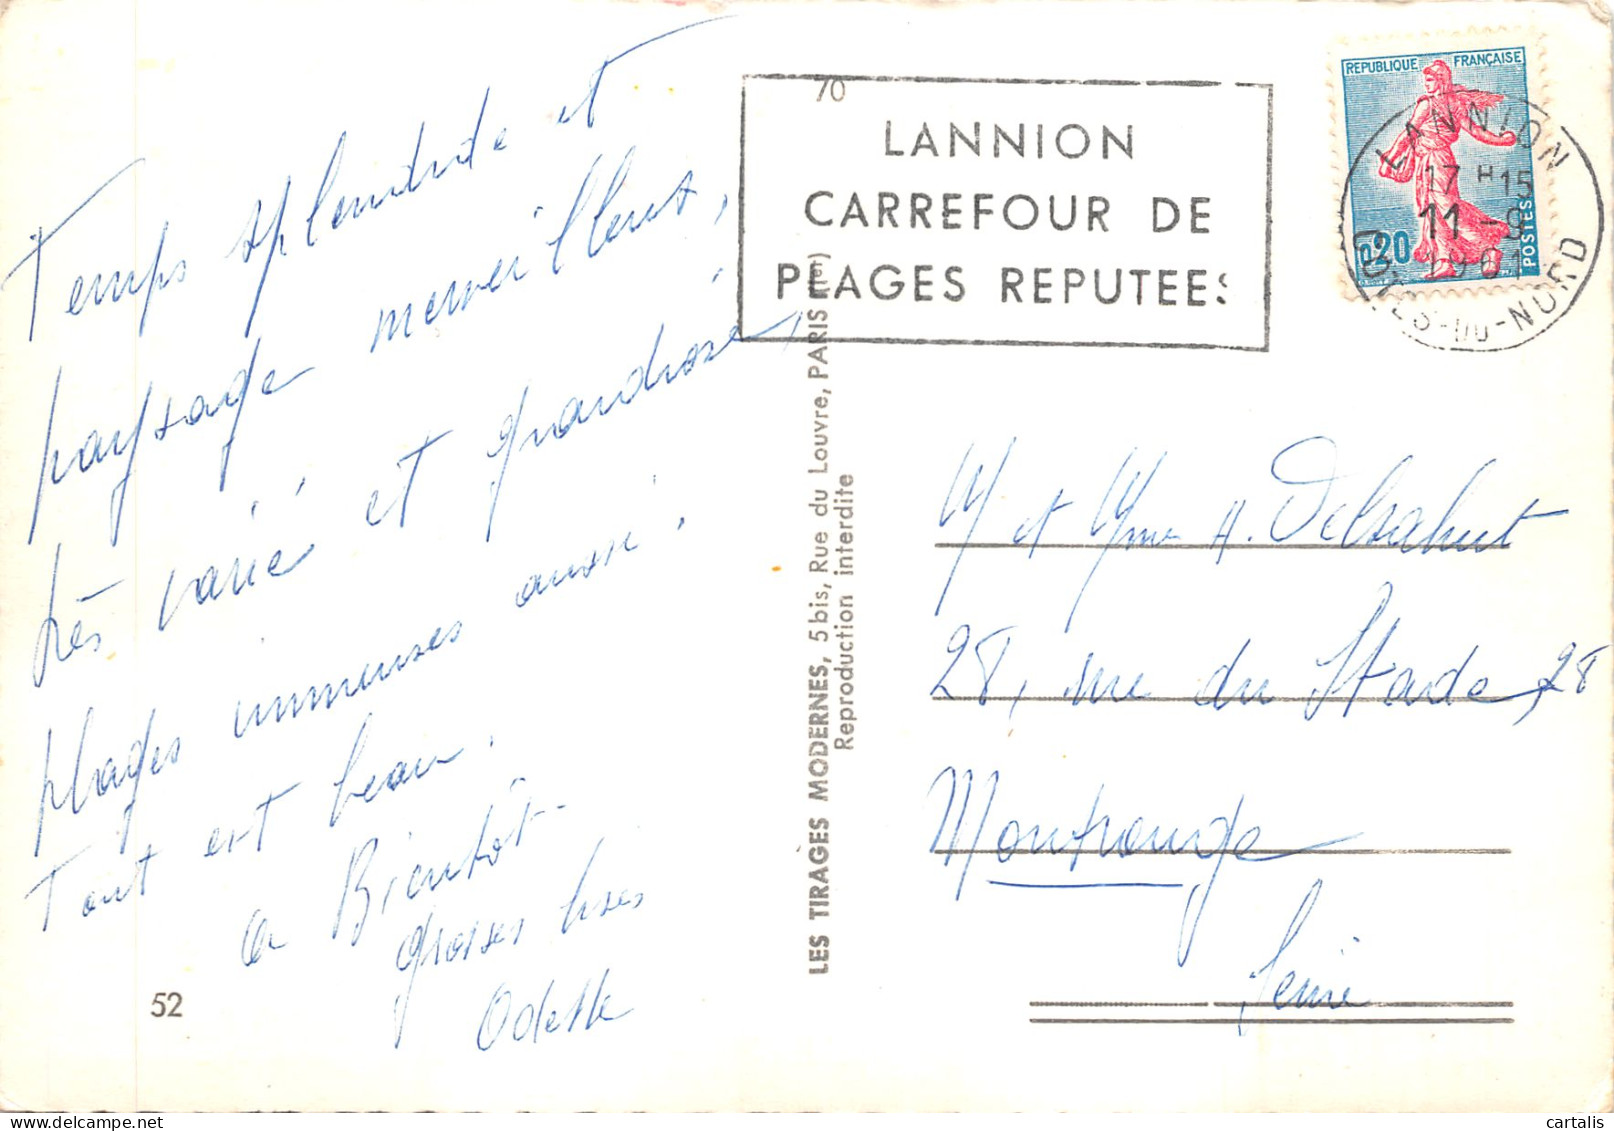 Temps splendide et
paysage merveilleux,
très varié et grandiose,
plages immenses aussi.
Tout est beau.
a Bientôt -
grosses bises
Odette
52
LES TIRAGES MODERNES, 5 bis, Rue du Louvre, PARIS (1er)
Reproduction interdite
70
LANNION
CARREFOUR DE
PLAGES REPUTEES
REPUBLIQUE FRANÇAISE
0,20
POSTES
LANNION
17 H 15
11 - 9
1961
COTES-DU-NORD
M et Mme A. Delsahut
28, rue du Stade, 28
Montrouge
Seine
cartalis